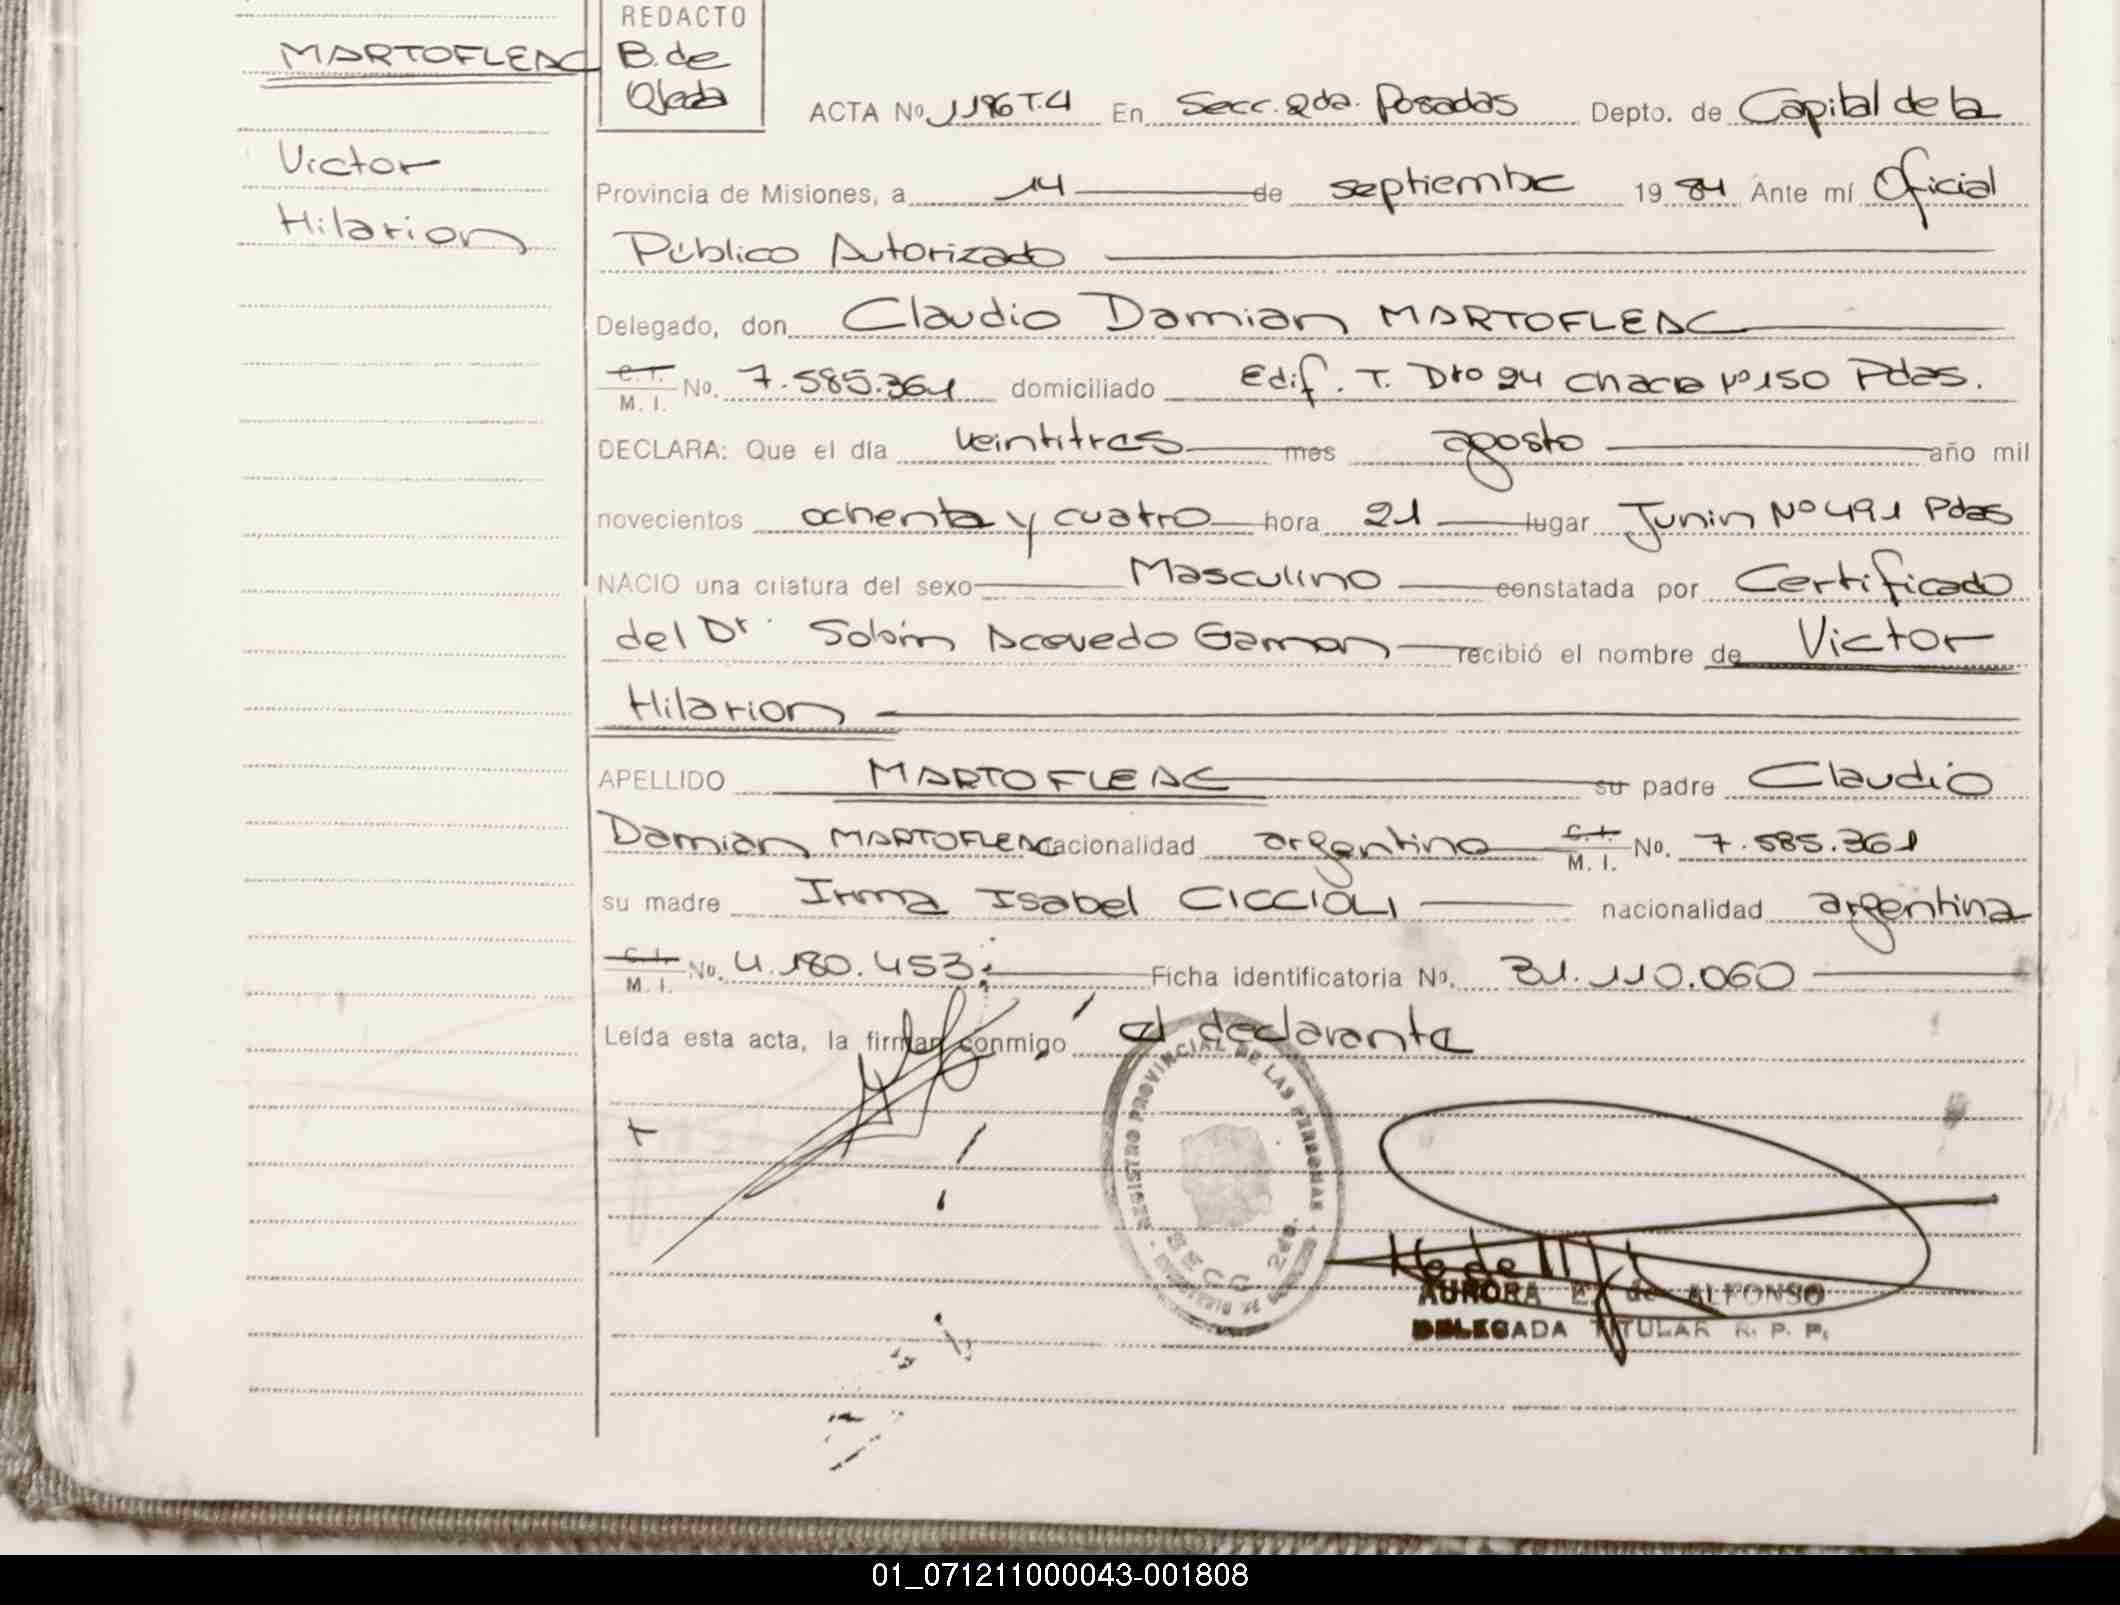 MARTOFLEAC
Victor
Hilarion
REDACTO
B. de
Ojeda
ACTA Nº 1196 T.4 En Secc. 2da. Posadas Depto. de Capital de la
Provincia de Misiones, a 14 de septiembre 1984 Ante mí Oficial
Público Autorizado
Delegado, don Claudio Damian MARTOFLEAC
C.I. M. I. No. 7.585.361 domiciliado Edif. T. Dto 24 chacra Nº 150 Pdas.
DECLARA: Que el día veintitres mes agosto año mil
novecientos ochenta y cuatro hora 21 lugar Junin Nº 491 Pdas
NACIO una criatura del sexo Masculino constatada por Certificado
del Dr. Acevedo recibió el nombre de Victor
Hilarion
APELLIDO MARTOFLEAC su padre Claudio
Damian MARTOFLEAC nacionalidad argentino C.I. M. I. No. 7.585.361
su madre Irma Isabel CICCIOLI nacionalidad argentina
C.I. M. I. No. 4.180.453 Ficha identificatoria Nº. 31.110.060
Leída esta acta, la firman conmigo el declarante
REGISTRO PROVINCIAL DE LAS PERSONAS
SECC 2da.
AURORA E. de ALFONSO
DELEGADA TITULAR R. P. P.
01_071211000043-001808